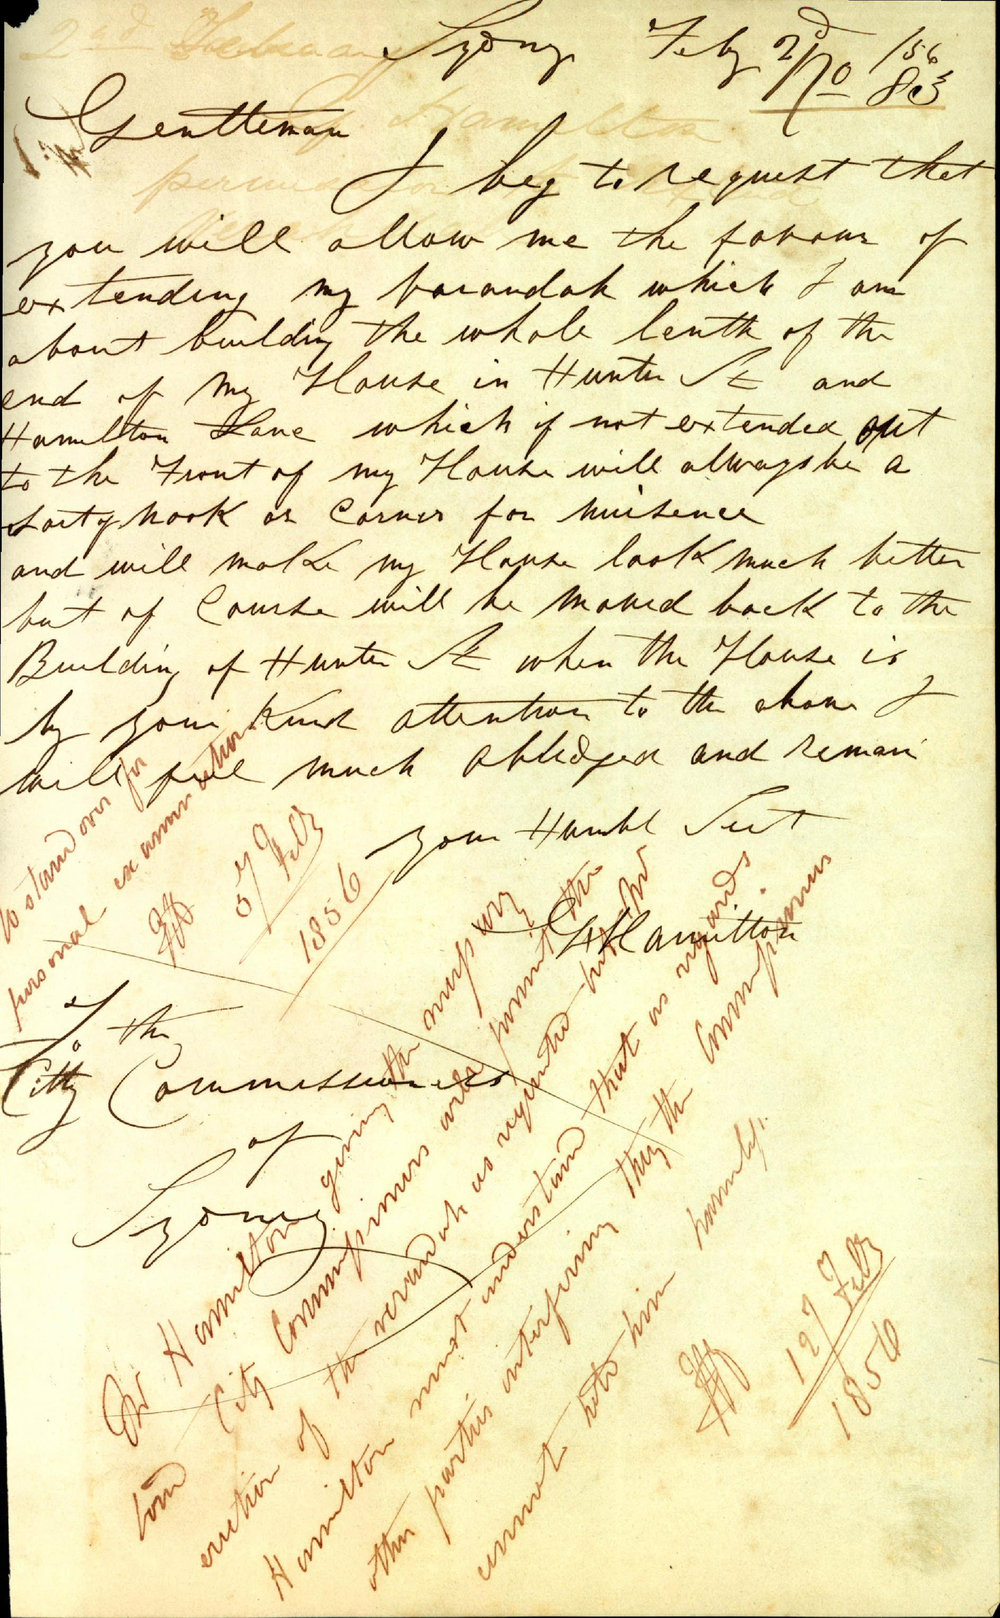 Sydney Feby 2nd / 70 156
83
Gentleman
I beg to request that
you will allow me the favour of
extending my varandah which I am
about building the whole lenth of the
end of my House in Hunter St and
Hamilton Lane which if not extended out
to the Front of my House will allways be a
nook or Corner for nuisence
and will make my House look much better
but of Course will be moved back to the
Building of Hunter St when the House is
by your Kind attention to the above I
will feel much obbledged and remain
your Humbl Sert
Hamilton
To the
Citty Commissioners
of
Sydney
to stand over for
personal examination
5/7 Feby
1856
Mr Hamilton giving the necessary
bond City Commissioners will permit the
erection of the verandah as requested but Mr
Hamilton must understand that as regards
other parties interfering they the Commissioners
cannot hold him harmless.
12/7 Feby
1856
2nd February
Hamilton